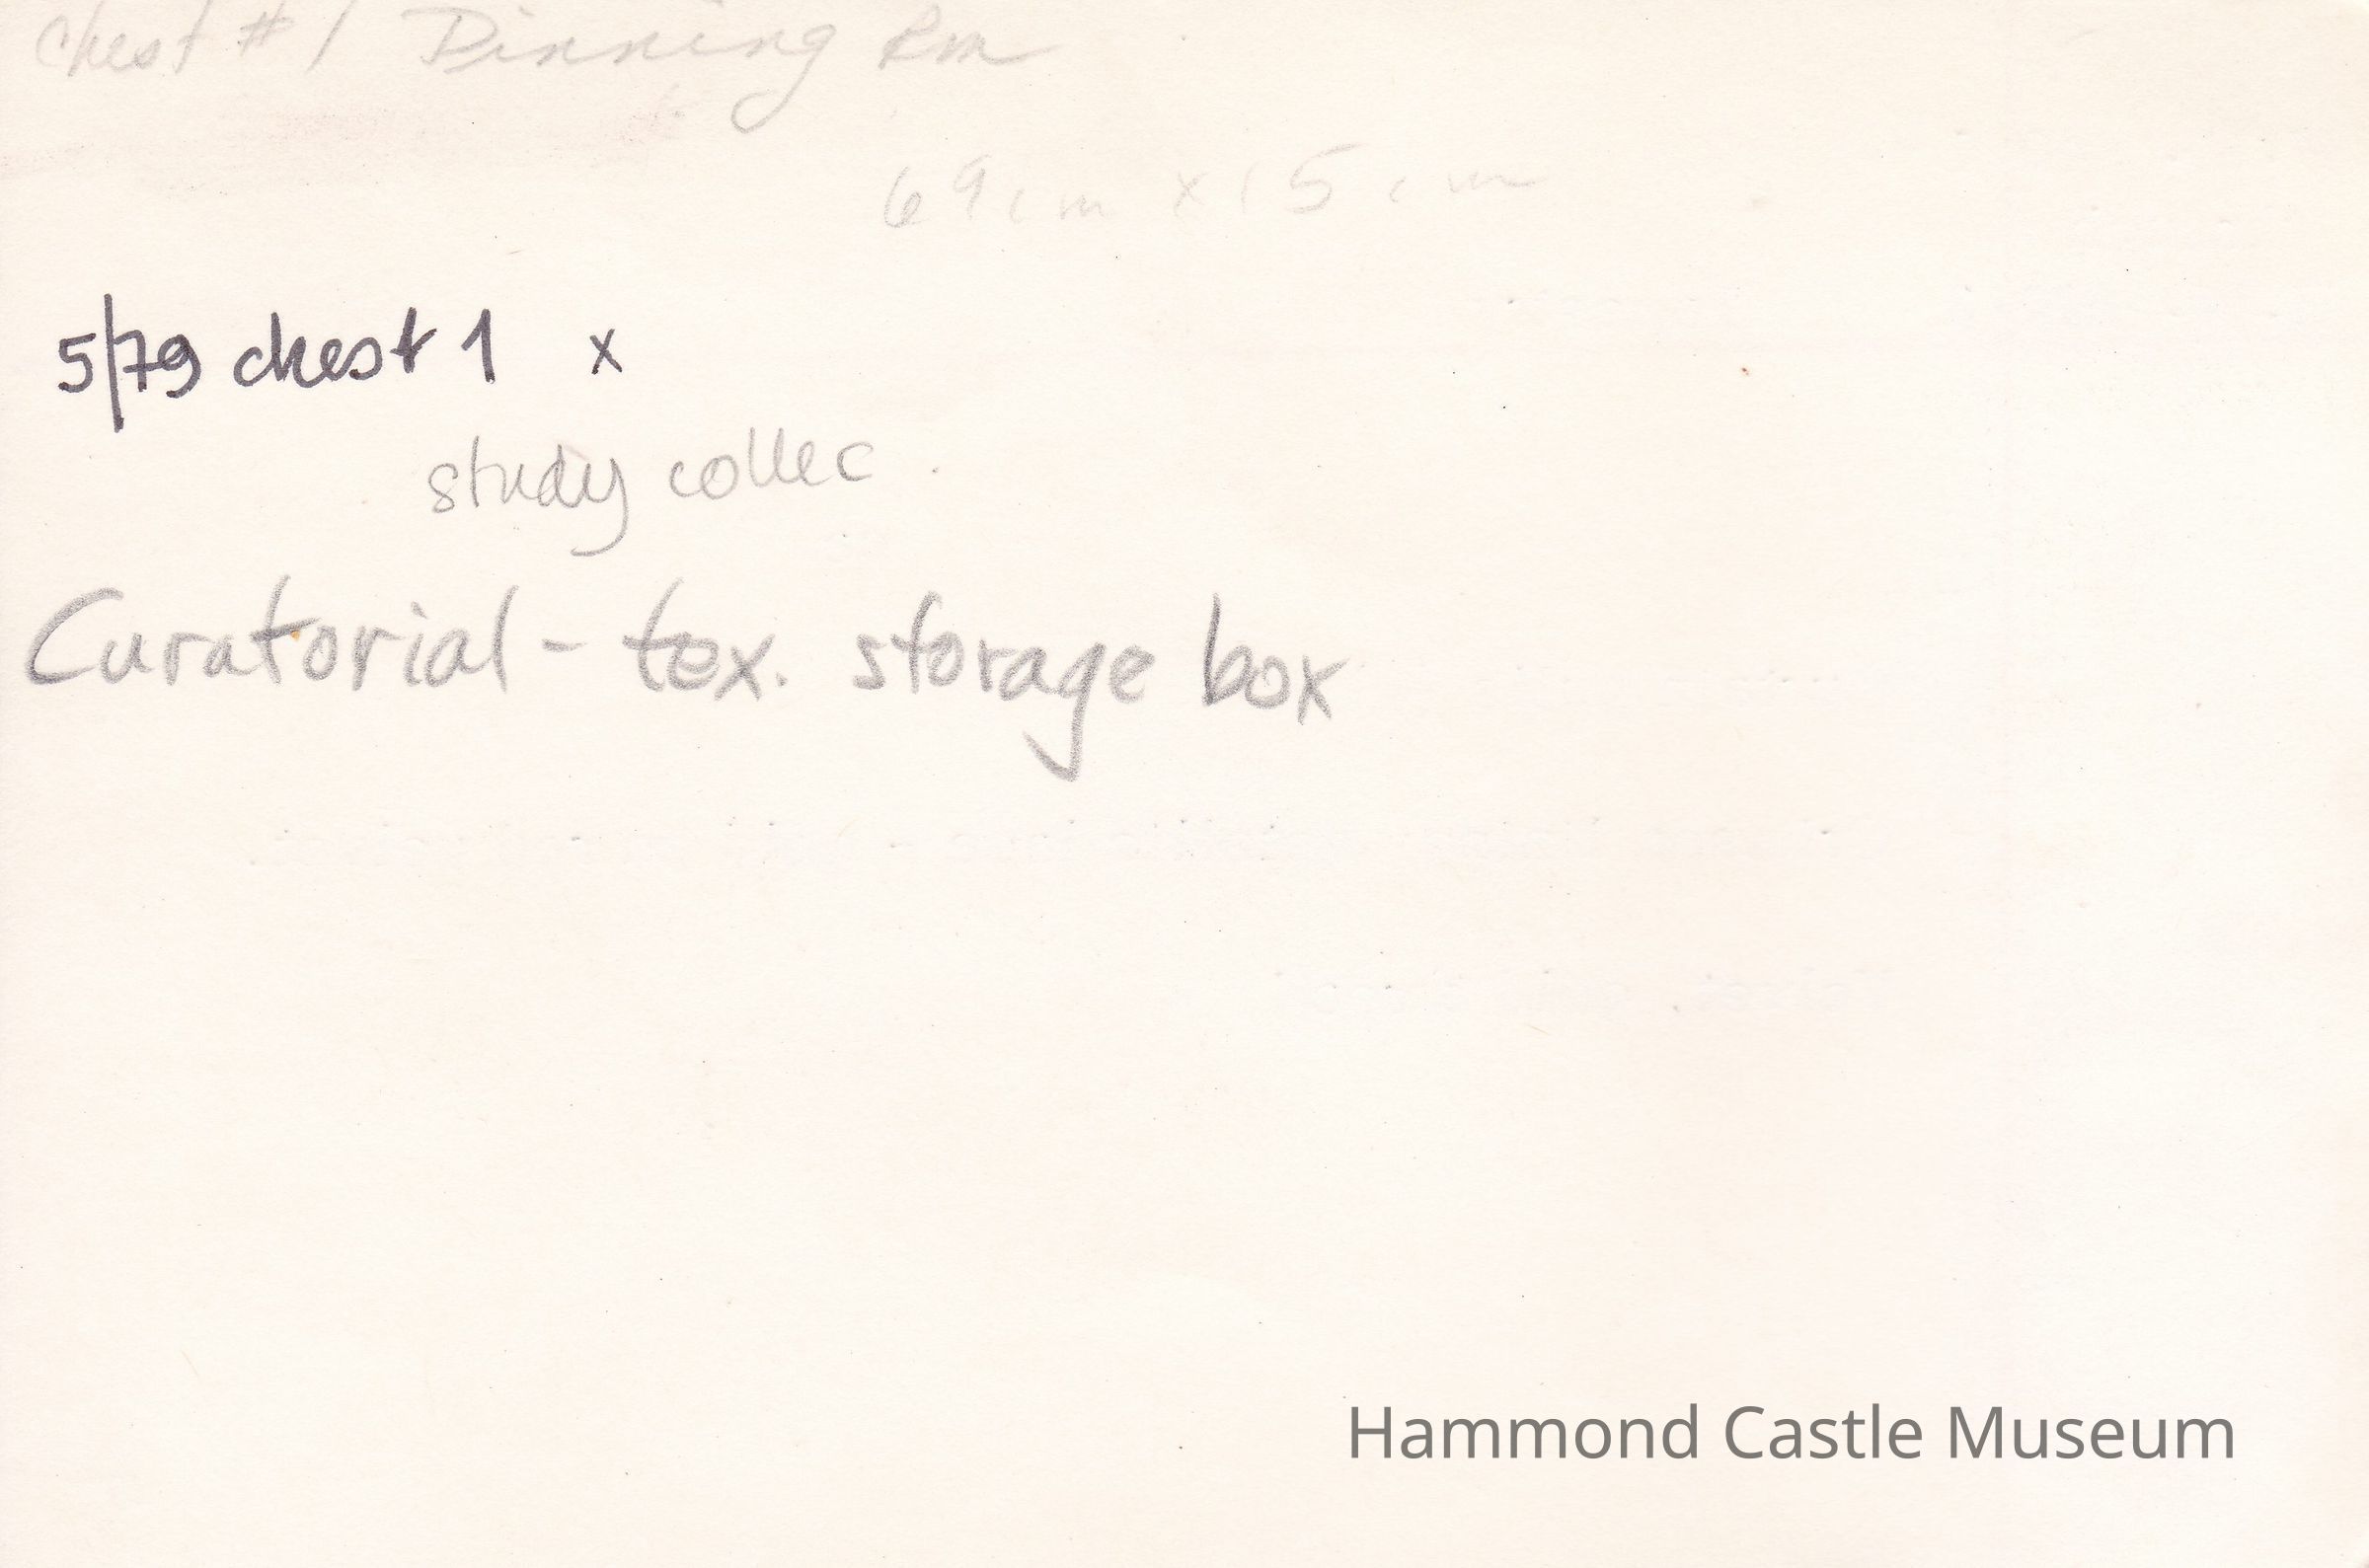 Chest #1 Dinning Rm
69cm x 15cm
5/79 chest 1 x
study collec.
Curatorial - tex. storage box
Hammond Castle Museum